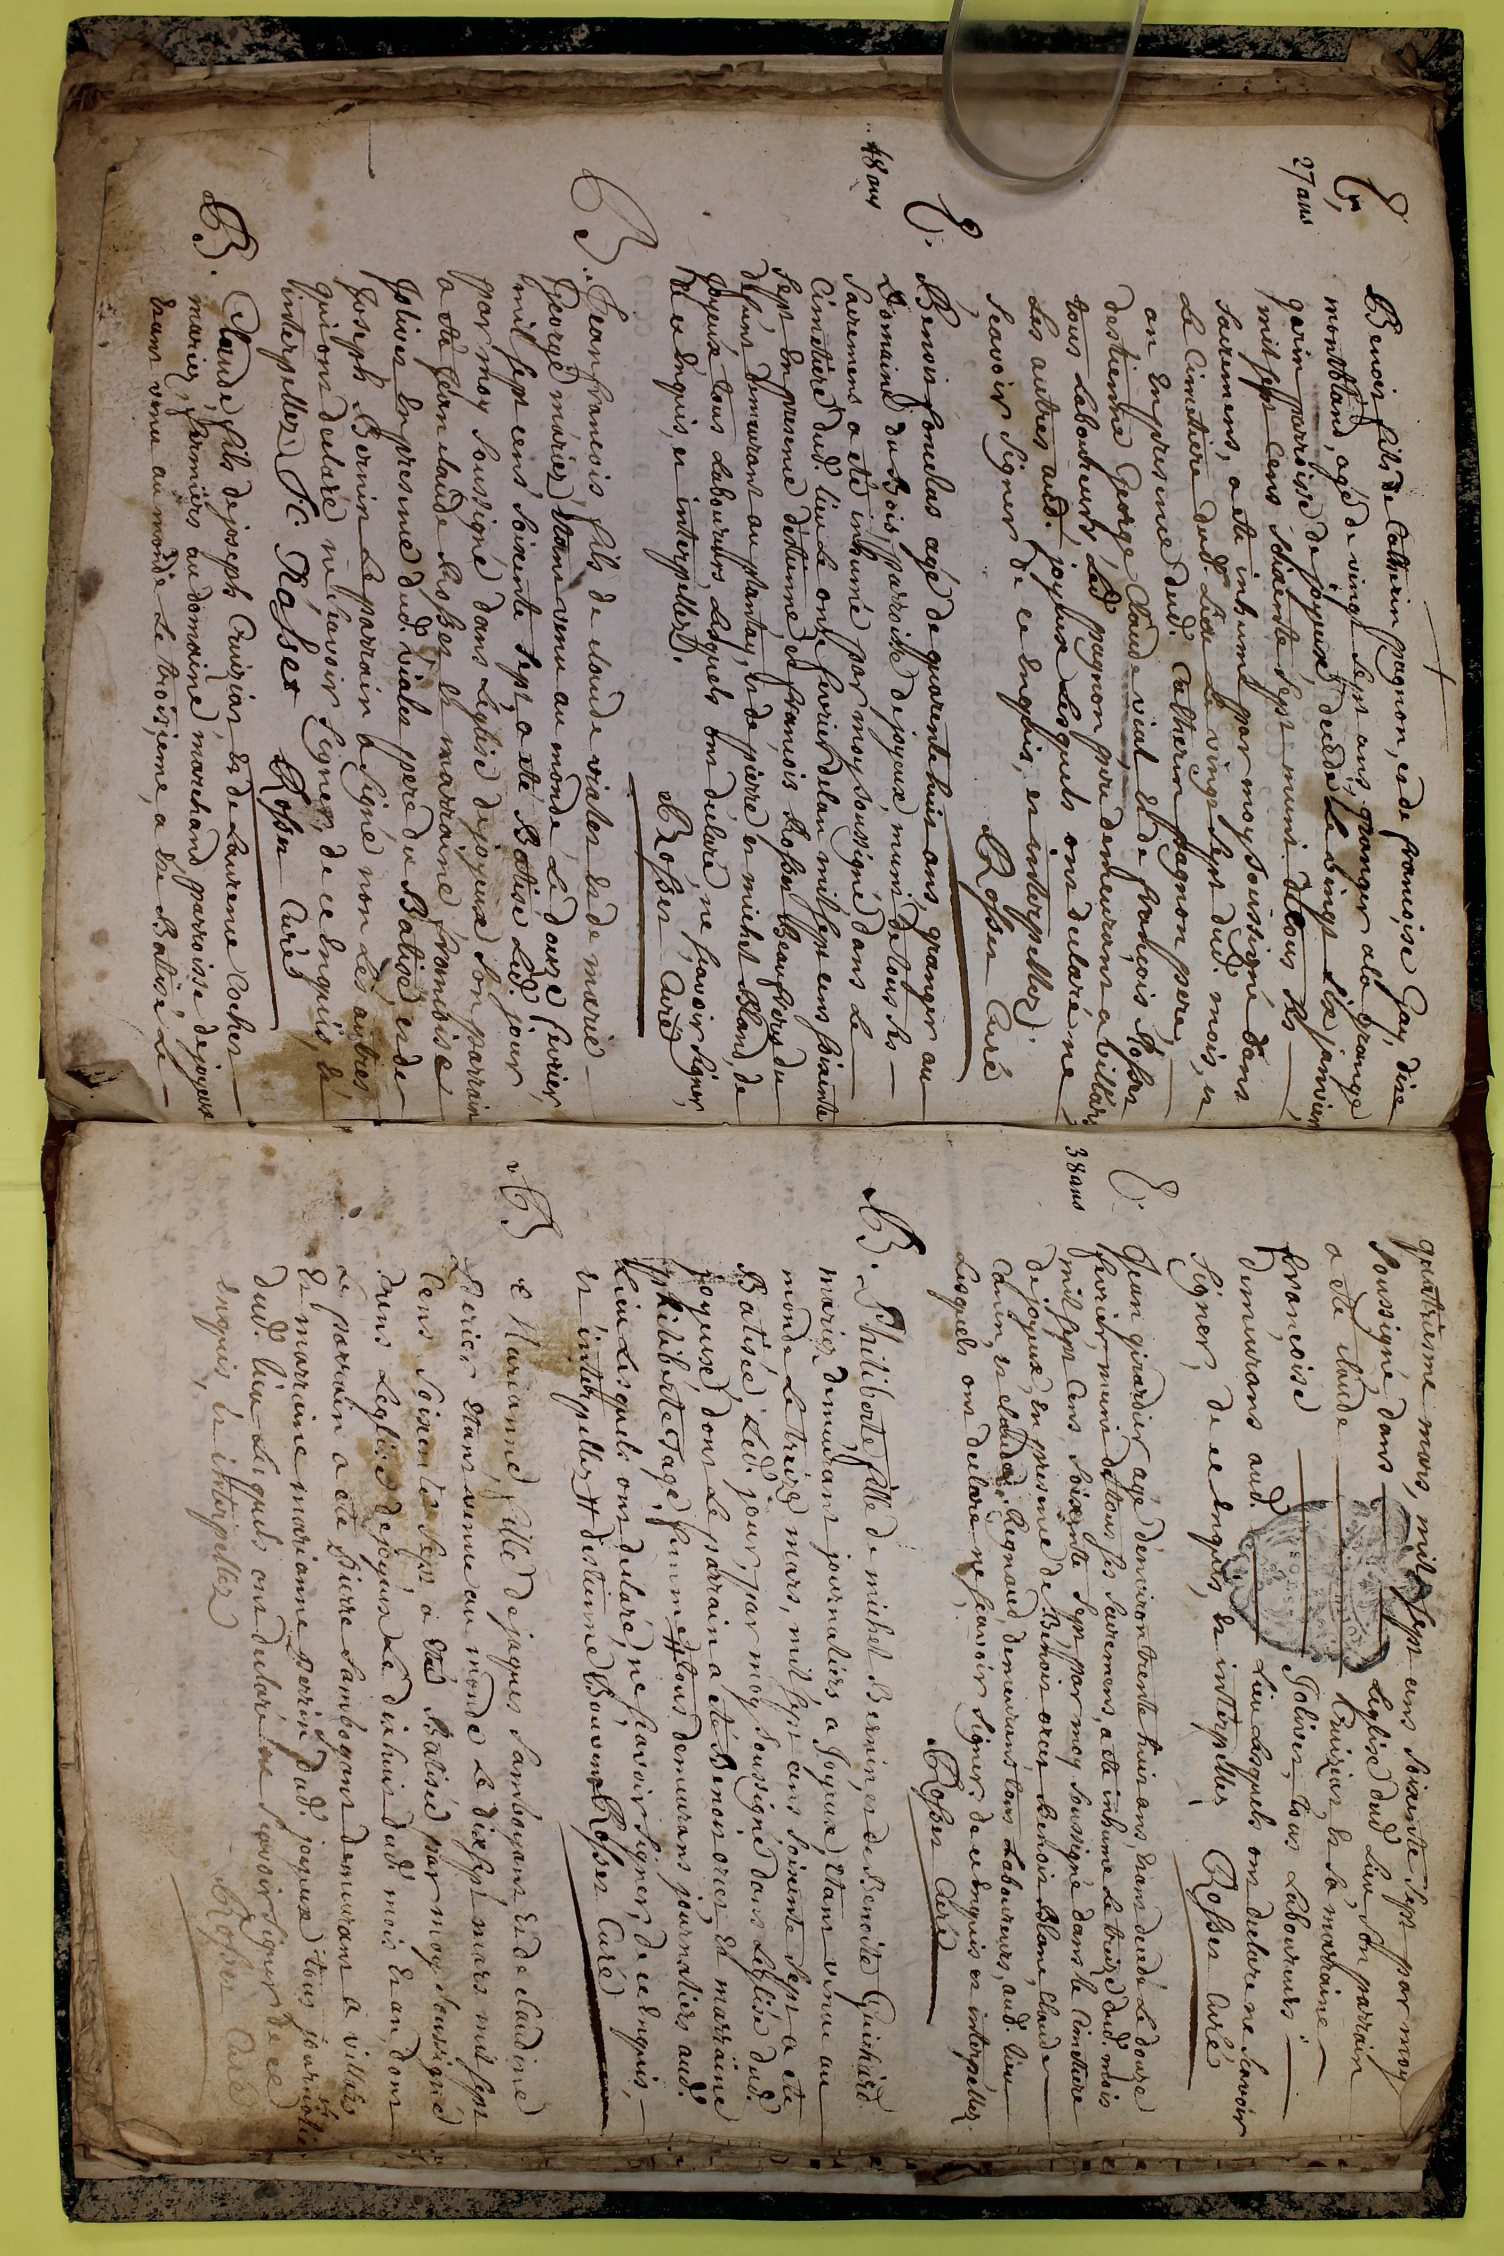 E.
27 ans
Benoit fils de Catherin pagnon, et de françoise Gay, dire
montbland, agé de vingt sept ans, granger a la grange
garin parroisse de joyeux, decedé le vingt six janvier
mil sept cens soixante sept muni de tous ses
sacremens, a eté inhumé par moy soussigné dans
le Cimetiere dud. lieu le vingt sept dud. mois, et
an en presence dud. Catherin pagnon pere,
destienne George Claude vial et de françois Rosset
tous Laboureurs, Led. pagnon pere demeurant a villars
Les autres aud. joyeux Lesquels ont declaré ne
scavoir signer de ce enquis, et interpellez.
Rosset Curé
E.
48 ans
Benoit fonuelas agé de quarente huit ans, granger au
Domaine du Bois parroisse de joyeux, muni de tous ses
sacremens a eté inhumé par moy soussigné dans le
Cimetiere dud. lieu le onze fevrier de lan mil sept cens soixante
sept en presence destienne et francois Rosset Beaufreres du
defunt demeurant au plantay, et de pierre et michel Bland, de
joyeux tous Laboureurs, Lesquels ont declaré ne scavoir signer
de ce enquis, et interpellez.
Rosset Curé
B.
Jean francois fils de claude vialet et de marie
George mariez, etant venu au monde le douze fevrier,
mil sept cens soixante sept, a eté Batisé Led. jour
par moy soussigné dans Leglise de joyeux son parrain
a eté Jean claude Rosset et marraine francoise
Jolivet en presence dud. vialet pere du Batisé et de
Joseph Bernin Le parrain a signé non les autres
qui ont declaré ne scavoir signer, de ce enquis, et
interpellez J. C. Rosset Rosset Curé
B.
Claude fils de joseph Cruiziat et de Laurence Cochet
mariez, fermiers au domaine marchand parroisse de joyeux
etant venu au monde le troisieme, a eté Batisé le
quatriesme mars, mil sept cens soixante sept par moy
soussigné, dans Leglise dud. lieu, son parrain
a eté claude Cruiziat, et sa marraine
françoise Jolivet, tous Laboureurs
demeurans aud. Lieu Lesquels ont declaré ne scavoir
signer, de ce enquis, et interpellez
Rosset Curé
E.
38 ans
Jean girardier agé denviron trente huit ans, etant decedé Le douze
fevrier, muni de tous ses sacremens, a eté inhumé le treize dud. mois
mil sept cens soixante sept par moy soussigné dans le Cimetiere
de joyeux, en presence de Benoit orcet Benoit Blanc, Claude
Canin, et claude Regnaud, demeurans, tous Laboureurs, aud. lieu
Lesquels ont declare ne scavoir signer, de ce enquis et interpellez
Rosset Curé
B.
Philiberte fille de michel Bernin, et de Benoite Guichard
mariez, demeurant journaliers, a Joyeux, etant venue au
monde Le treize mars, mil sept cens soixante sept a eté
Batisée Led. jour, par moy soussigné dans Leglise dud.
joyeux, dont Le parrain a eté Benoit orcet et marraine
philiberte Tagé femme # tous demeurans journaliers aud.
Lieu Lesquels ont declaré, ne scavoir signer, de ce enquis,
et interpellez # destienne Bouvent Rosset Curé
B
Marianne fille de jaques Lamboyant, et de Claudine
Perier etant venue au monde Le dix sept mars mil sept
Cens soixante sept, a eté Batisée par moy soussigné
dans Leglise de joyeux Le dix huit dud. mois et an, dont
Le parrain a eté Pierre Lamboyant demeurant a villars
Et marraine marianne perrin dud. joyeux tous journaliers
dud. lieu Lesquels ont declaré ne scavoir signer de ce
enquis, et interpellez
Rosset Curé